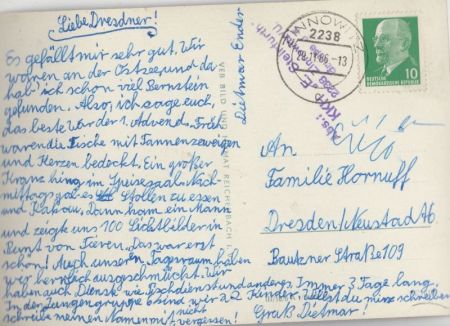 Liebe Dresdner!
Es gefällt mir sehr gut. Wir
wohnen an der Ostsee und da
hab' ich schon viel Bernstein
gefunden. Also, ich sage euch,
das beste war der 1. Advend. Früh
waren die Tische mit Tannenzweigen
und Herzen bedeckt. Ein großer
Kranz hing im Speisesaal. Nach-
mittags gab es Stollen zu essen
und Kakau. Dann kam ein Mann
und zeigte uns 100 Lichtbilder in
Bunt von Tieren. Das war erst
schön! Auch unseren Tagesraum haben
wir herrlich ausgeschmückt. Wir
haben auch Dienst wie Tischdienst und anders. Immer 3 Tage lang.
In der Jungengruppe 6 sind wir 22 Kinder. Willst du mir schreiben
schreibe meinen Namen mit nicht vergessen! Gruß Dietmar!
Dietmar Ender
VEB BILD UND HEIMAT REICHENBACH I. V.
ZINNOWITZ
2238
-13
Abs: KKH „E. Steinfurth"
2238
DEUTSCHE
DEMOKRATISCHE REPUBLIK
10
An
Familie Hornuff
Dresden/Neustadt A6
Bautzner Straße 109